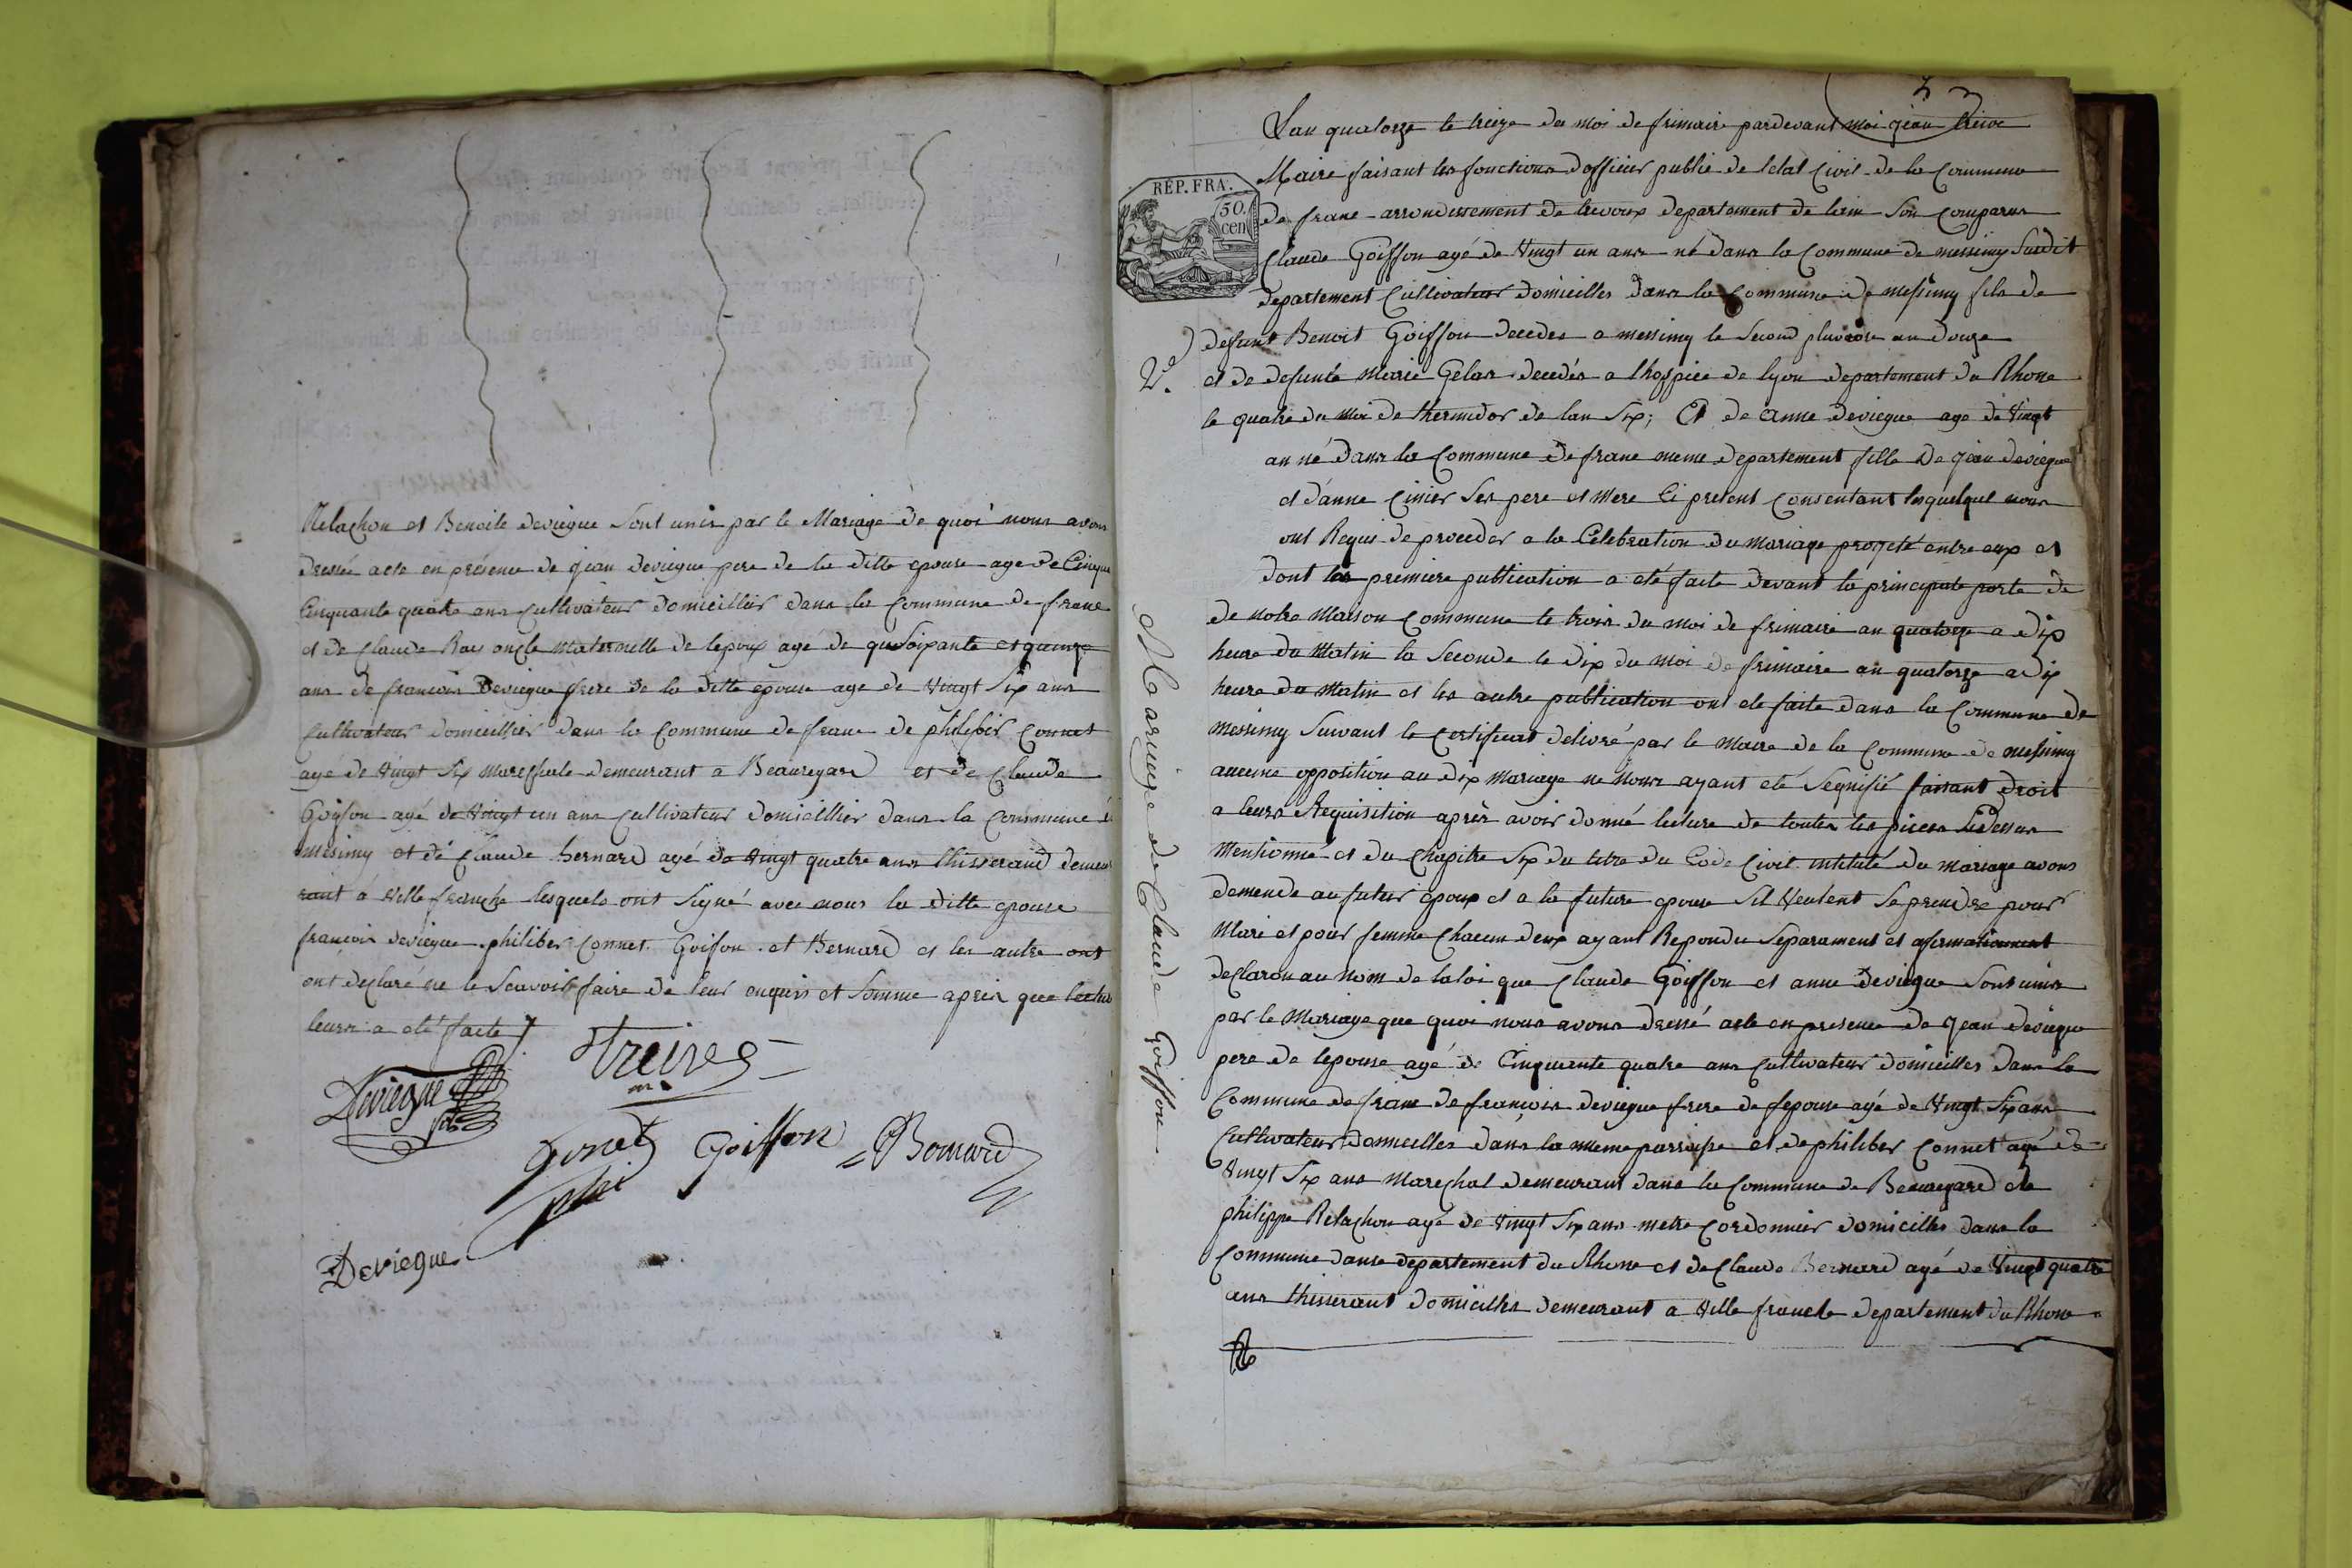 Relachon et Benoite deviegue sont unis par le Mariage de quoi nous avons
dressée acte en présence de jean deviegue pere de la ditte epouse age de Cinqua
Cinquante quatre ans cultivateur domicillier dans la commune de franc
et de Claude Ray oncle maternelle de lepoux agé de qu soixante et quinze
ans de francois Deviegue frere de la ditte epouse age de vingt six ans
Cultivateur domicillier dans la commune de franc de philiber connet
agé de vingt six Marechale demeurant a Beauregard et de Claude
Goifon agé de vingt un ans cultivateur domicillier dans la commune de
mesimy et de Claude bernard agé de vingt quatre ans thisserand demeu
rant á ville franche lesquels ont signé avec nous la ditte epouse
francois deviegue philiber connet Goifon et Bernard et les autre ont
ont declaré ne le scavoir faire de leur enquis et somme apres que lectur
leurs a eté faite
Deviegue
fils
treives
m.
Gonet
phi
Goiffon
Bernard
Deviegue
2
Lan quatorze le treize du moi de frimaire pardevant moi jean treive
Maire faisant les fonctions dofficier public de letat Civil de la Commune
de franc arrondissement de trevoux departement de lain son comparus
RÉP. FRA.
50.
cen
Claude Goiffon agé de vingt un ans né dans la Commune de messimy susdit
departement Cultivateur domicilles dans la Commune de messimy fils de
defunt Benoit Goiffon decedes a messimy le second pluviose an douze
2e.
et de defunte marie Gelas decedés a lhospice de lyon departement du Rhone
le quatre du moi de thermidor de lan six; Et de anne deviegue age de vingt
an né dans la commune de franc meme departement fille de jean deviegue
et danne Cinier ses pere et mere Ci present consentant lesquelque nous
ont Requis de proceder a la Celebration du mariage projeté entre eux et
dont las premiere publication a eté faite devant la principale porte de
de notre maison commune le trois du moi de frimaire an quatorze a dix
heure du Matin la seconde le dix du moi de frimaire an quatorze a dix
heure du Matin et les autre publication ont ete faite dans la Commune de
messimy suivant le certificat delivré par le maire de la commune de messimy
aucune opposition au dix mariage ne nous ayant eté segnifié faisant droit
a leurs Requisition après avoir donné lecture de toutes les pieces sidessus
Mentionné et du chapitre six du titre du Code Civil intitulé du mariage avons
demende au futur epoux et a la future epouse sil veulent se prendre pour
Mari et pour femme chacun deux ayant Repondu separament et afirmativement
declaron au nom de la loi que Claude Goiffon et anne deviegue sont unis
par le Mariage que quoi nous avons dressé acte en presence de jean deviegue
pere de lepouse agé de Cinquante quatre ans cultivateur domicilles dans la
Commune de franc de francois deviegue frere de lepouse agé de vingt six ans
Cultivateur domicilles dans la meme parroisse et de philiber connet agé de
vingt six ans marechal demeurant dans la commune de Beauregard de
philippe Relachon agé de vingt six ans metre cordonnier domicilles dans la
Commune danse departement du Rhone et de Claude Bernard agé de vingt quatre
ans thisserant domicilles demeurant a ville franche departement du Rhone
Mariage de Claude Goiffon